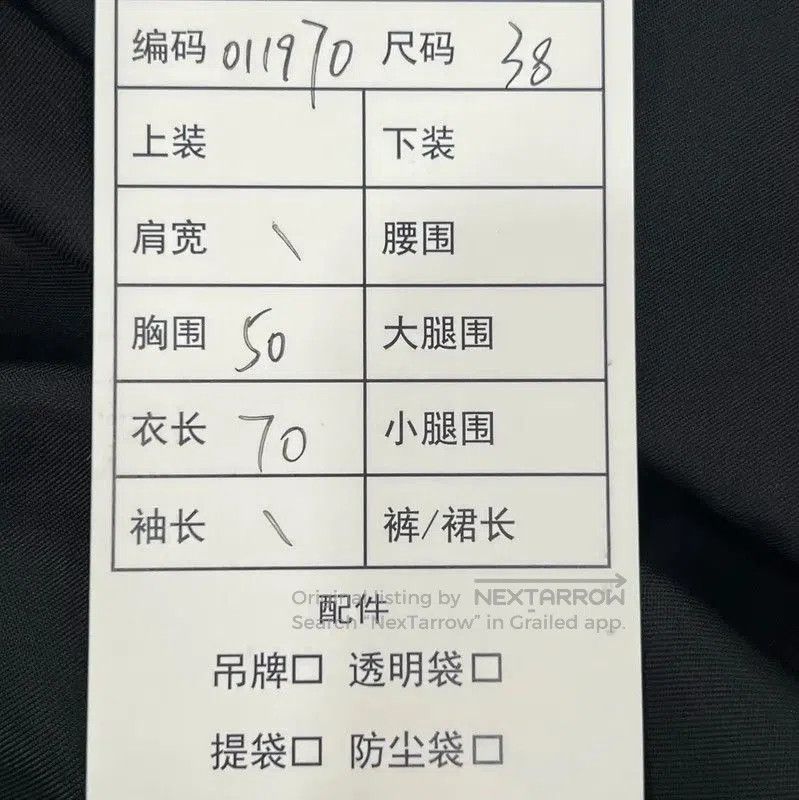 编码 011970 尺码 38
上装 下装
肩宽 \ 腰围
胸围 50 大腿围
衣长 70 小腿围
袖长 \ 裤/裙长
配件
Original listing by NEXTARROW
Search "NexTarrow" in Grailed app.
吊牌□ 透明袋□
提袋□ 防尘袋□